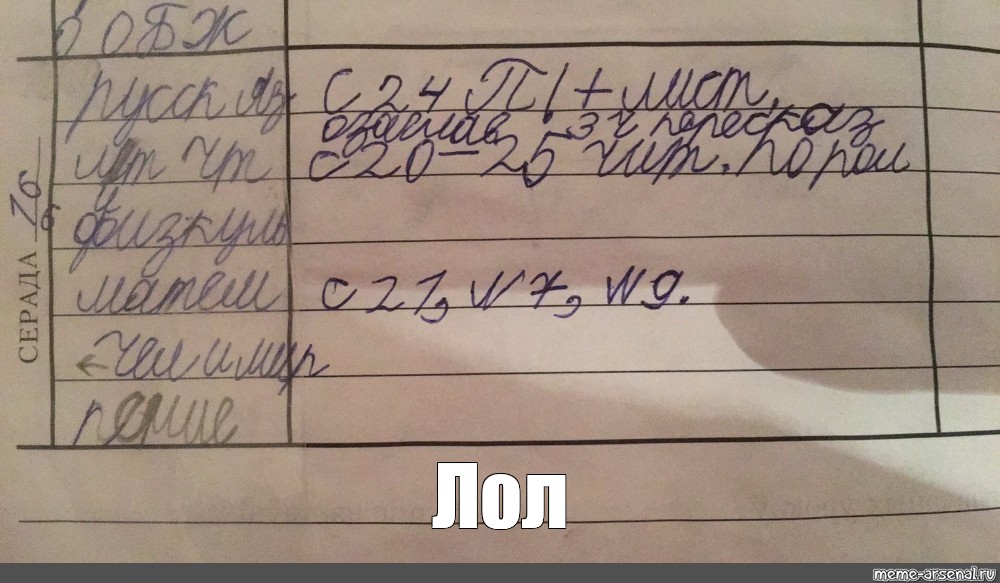 6 ОБЖ
русск яз с 24 П 1 + лист,
озаглав 3 ч пересказ
лит чт с 20-25 чит. по рол
физкуль
матем с 21, N 7, N 9.
← чел и мир
пение
СЕРАДА
Лол
meme-arsenal.ru